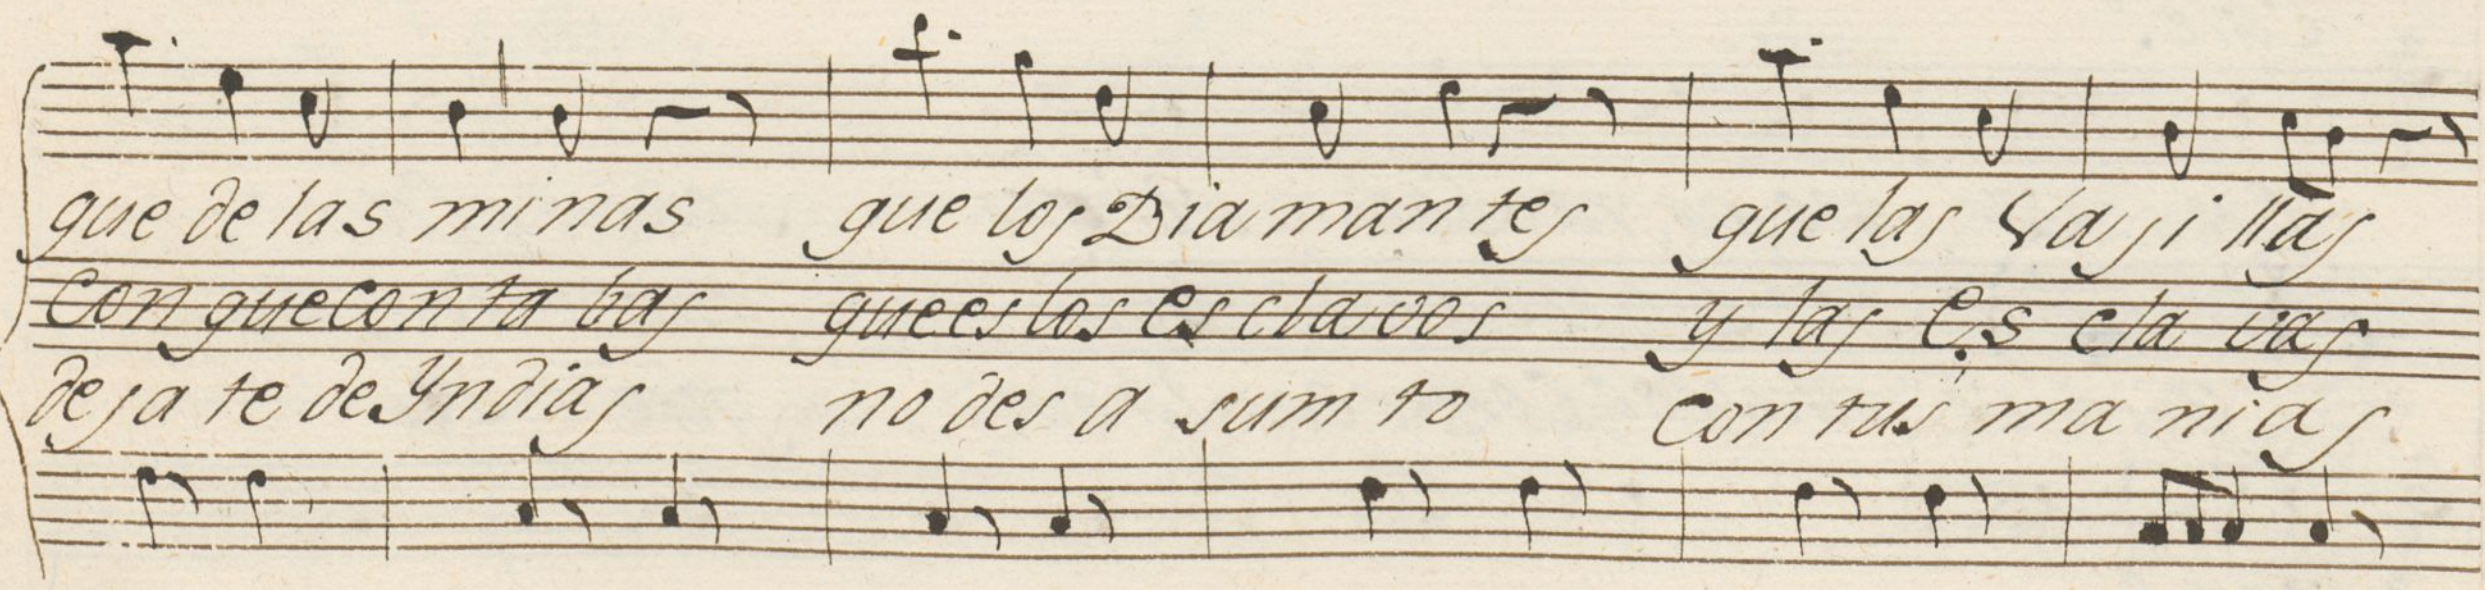 que de las minas que los Diamantes que las Vajillas
con que contabas que es los esclavos y las esclavas
dejate de Yndias no des asumto con tus manias